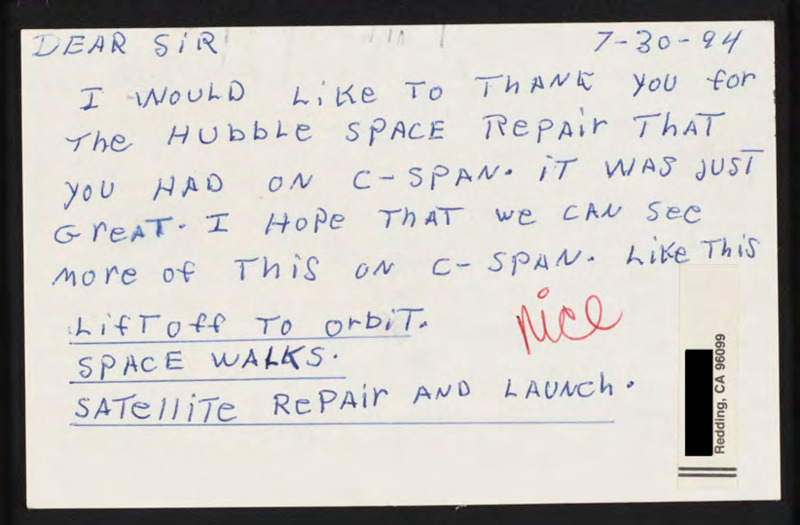 DEAR SIR 7-30-94
I WOULD LiKe To THANK you for
The HUbbLe SPACE RePAir THAT
you HAD ON C-SPAN. iT WAS JUST
GreAT. I HoPe THAT we CAN See
More of THiS ON C-SPAN. LiKe THiS
LifToff To orbiT.
SPACE WALKS.
SATelliTe RePAir AND LAUNch.
Nice
Redding, CA 96099